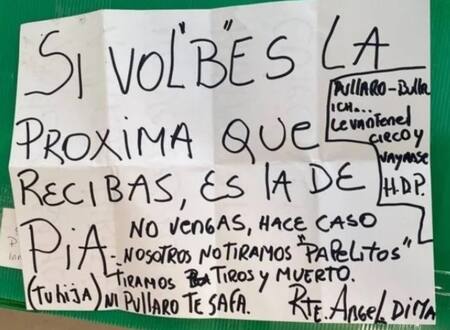 SI VOL"B"ES LA
PROXIMA QUE
RECIBAS, ES lA DE
PiA.
(Tu hija)
NO VENGAS, HACE CASO
NOSOTROS NO TIRAMOS "PAPELITOS"
TIRAMOS TIROS y MUERTO.
NI PULLARO TE SAFA.
RTE. ANGEL DIMA
PULLARO-Bulla
ICH...
LEVANTEN el
CIRCO y
VAYANSE
H.D.P.